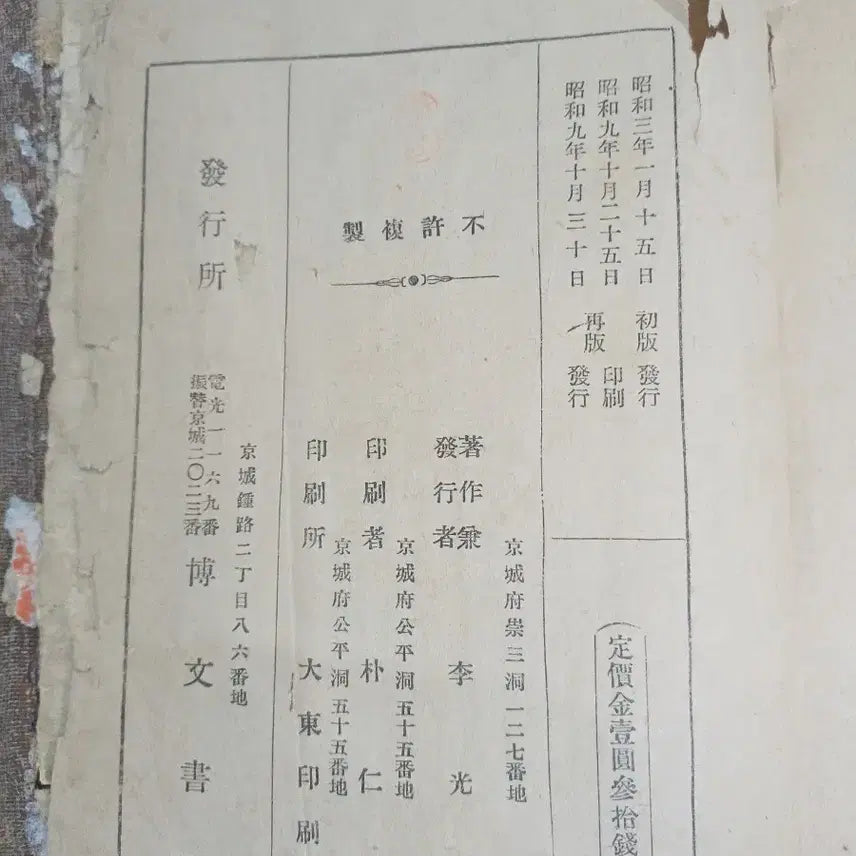 昭和三年一月十五日 初版 發行
昭和九年十月二十五日 再版 印刷
昭和九年十月三十日 發行
定價金壹圓參拾錢
不許複製
京城府崇三洞一二七番地
著作兼
發行者 李光
京城府公平洞五十五番地
印刷者 朴仁
京城府公平洞五十五番地
印刷所 大東印刷
發行所
京城鍾路二丁目八六番地
電光一一六九番
振替京城二〇二三番
博文書